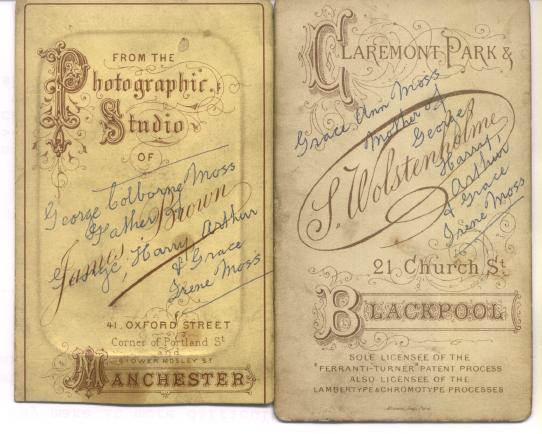 FROM THE
Photographic
Studio
OF
James Brown
41. OXFORD STREET
Corner of Portland St
and
LOWER MOSLEY ST
MANCHESTER
George Colborne Moss
Father of
George, Harry, Arthur
& Grace
Irene Moss
CLAREMONT PARK &
S. Wolstenholme
21, Church St.
BLACKPOOL
SOLE LICENSEE OF THE
"FERRANTI-TURNER" PATENT PROCESS
ALSO LICENSEE OF THE
LAMBERTYPE & CHROMOTYPE PROCESSES
Grace Ann Moss
Mother of
George
Harry,
Arthur
& Grace
Irene Moss